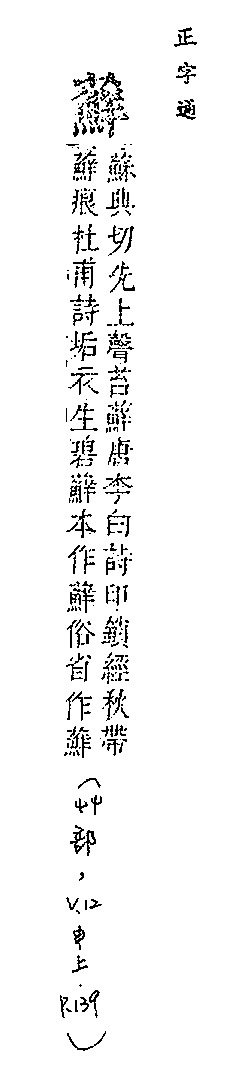 正字通
蘇典切先上聲苔蘚唐李白詩印鎖經秋帶
蘚痕杜甫詩垢衣生碧蘚本作蘚俗省作蘚
(艸部, V.12 申上. P.139)